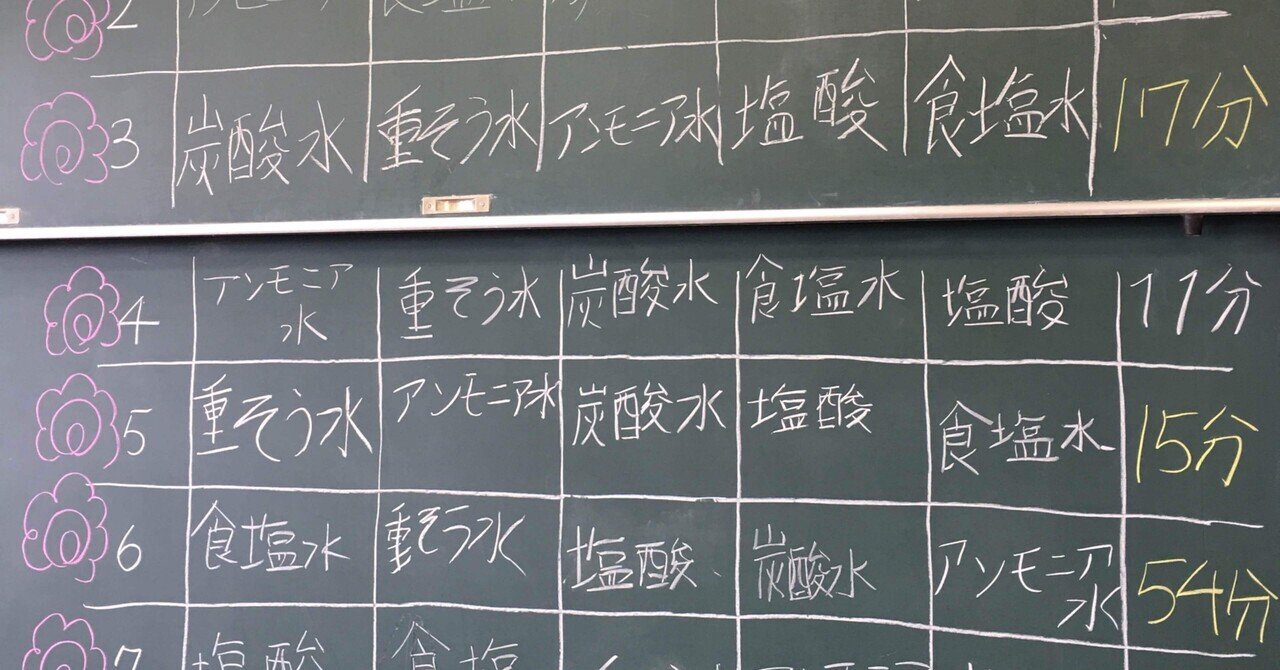 2
3 炭酸水 重そう水 アンモニア水 塩酸 食塩水 17分
4 アンモニア水 重そう水 炭酸水 食塩水 塩酸 11分
5 重そう水 アンモニア水 炭酸水 塩酸 食塩水 15分
6 食塩水 重そう水 塩酸 炭酸水 アンモニア水 54分
7 塩酸 食塩